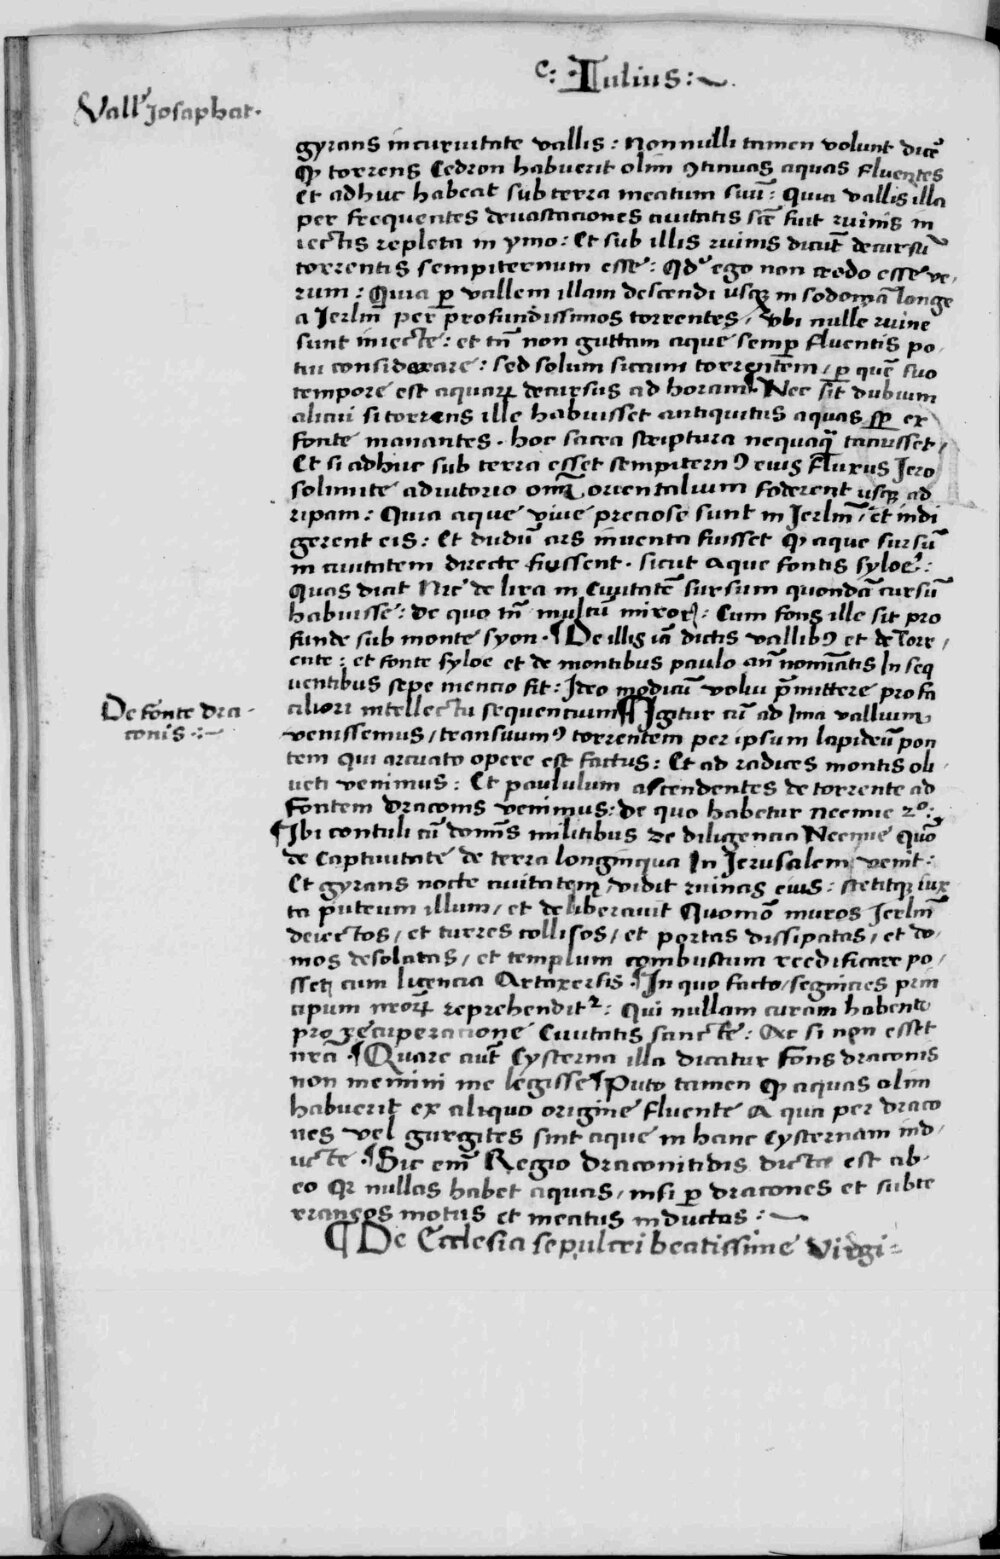 c: Iulius:~.
Vall' Josaphat.
gyrans in curuitate vallis: Nonnulli tamen volunt dice᷑
ꝙ torrens Cedron habuerit olim ꝯtinuas aquas fluentes
Et adhuc habeat sub terra meatum suū: Quia vallis illa
per frequentes deuastaciones ciuitatis sc̄e fuit ruinis in
iectis repleta in ymo: Et sub illis ruinis dicūt decursū
torrentis sempiternum esse: Qd' ego non credo esse ve,
rum: Quia ꝑ vallem illam descendi usqꝫ in sodomā longe
a Jerlm̄ per profundissimos torrentes, vbi nulle ruine
sunt iniecte: et tn̄ non guttam aque semꝑ fluentis po,
tui considerare: sed solum siccum torrentem, ꝑ quē suo
tempore est aquaꝝ decursus ad horam. Nec sit dubium
alicui si torrens ille habuisset antiquitus aquas sꝑ ex
fonte manantes. hoc sacra scriptura nequaꝙ̄ tacuisset,
Et si adhuc sub terra esset sempiternꝯ eius fluxus Jero
solimite adiutorio om̄ orientalium foderent usqꝫ ad
ripam: Quia aque viue preciose sunt in Jerlm̄, et indi
gerent eis: Et dudū ars inuenta fuisset ꝙ aque sursū
in ciuitatem directe fuissent. sicut aque fontis syloe:
Quas dicit Nic' de lira in Ciuitatē sursum quondā cursū
habuisse: de quo tn̄ multū miror: Cum fons ille sit pro
funde sub monte syon. ¶De illis iā dictis vallibꝯ et de Torre,
ente: et fonte syloe et de montibus paulo an̄ nomīatis In seq
uentibus sepe mencio fit: Ideo modicū volui p̄mittere pro fa
ciliori intellectu sequencium ¶Igitur cū ad Ima vallium
De fonte dra-
conis ·:~
venissemus, transiuimꝯ torrentem per ipsum lapideū pon
tem qui arcuato opere est factus: Et ad radices montis oli,
ueti venimus: Et paululum ascendentes de torrente ad
Fontem Draconis venimus: de quo habetur neemie 2º:
¶Ibi contuli cū domīs militibus de diligencia Neemie quō
de Captiuitate de terra longinqua In Jerusalem venit:
Et gyrans nocte ciuitatem, vidit ruinas eius: stetitqꝫ iux
ta puteum illum, et deliberauit Quomō muros Jerlm̄
deiectos, et turres collisos, et portas dissipatas, et do,
mos desolatas, et templum combustum reedificare po,
sset cum licencia Artaxersis. ¶In quo facto, segnicies prin
cipum nr̄oꝝ reprehenditᷣ: Qui nullam curam habent
pro recuperacione Ciuitatis sancte: Ac si non esset
nr̄a. ¶Quare aūt Cysterna illa dicatur fons draconis
non memini me legisse ¶Puto tamen ꝙ aquas olim
habuerit ex aliquo origine fluente A qua per draco
nes vel gurgites sint aque in hanc Cysternam ind,
ucte. ¶Sic em̄ Regio draconitidis dicta est ab.
eo ꝙ nullas habet aquas, nisi ꝑ dracones et subte
rraneos motus et meatus inductas: ~
¶ De Ecclesia sepulcri beatissime Virgi=